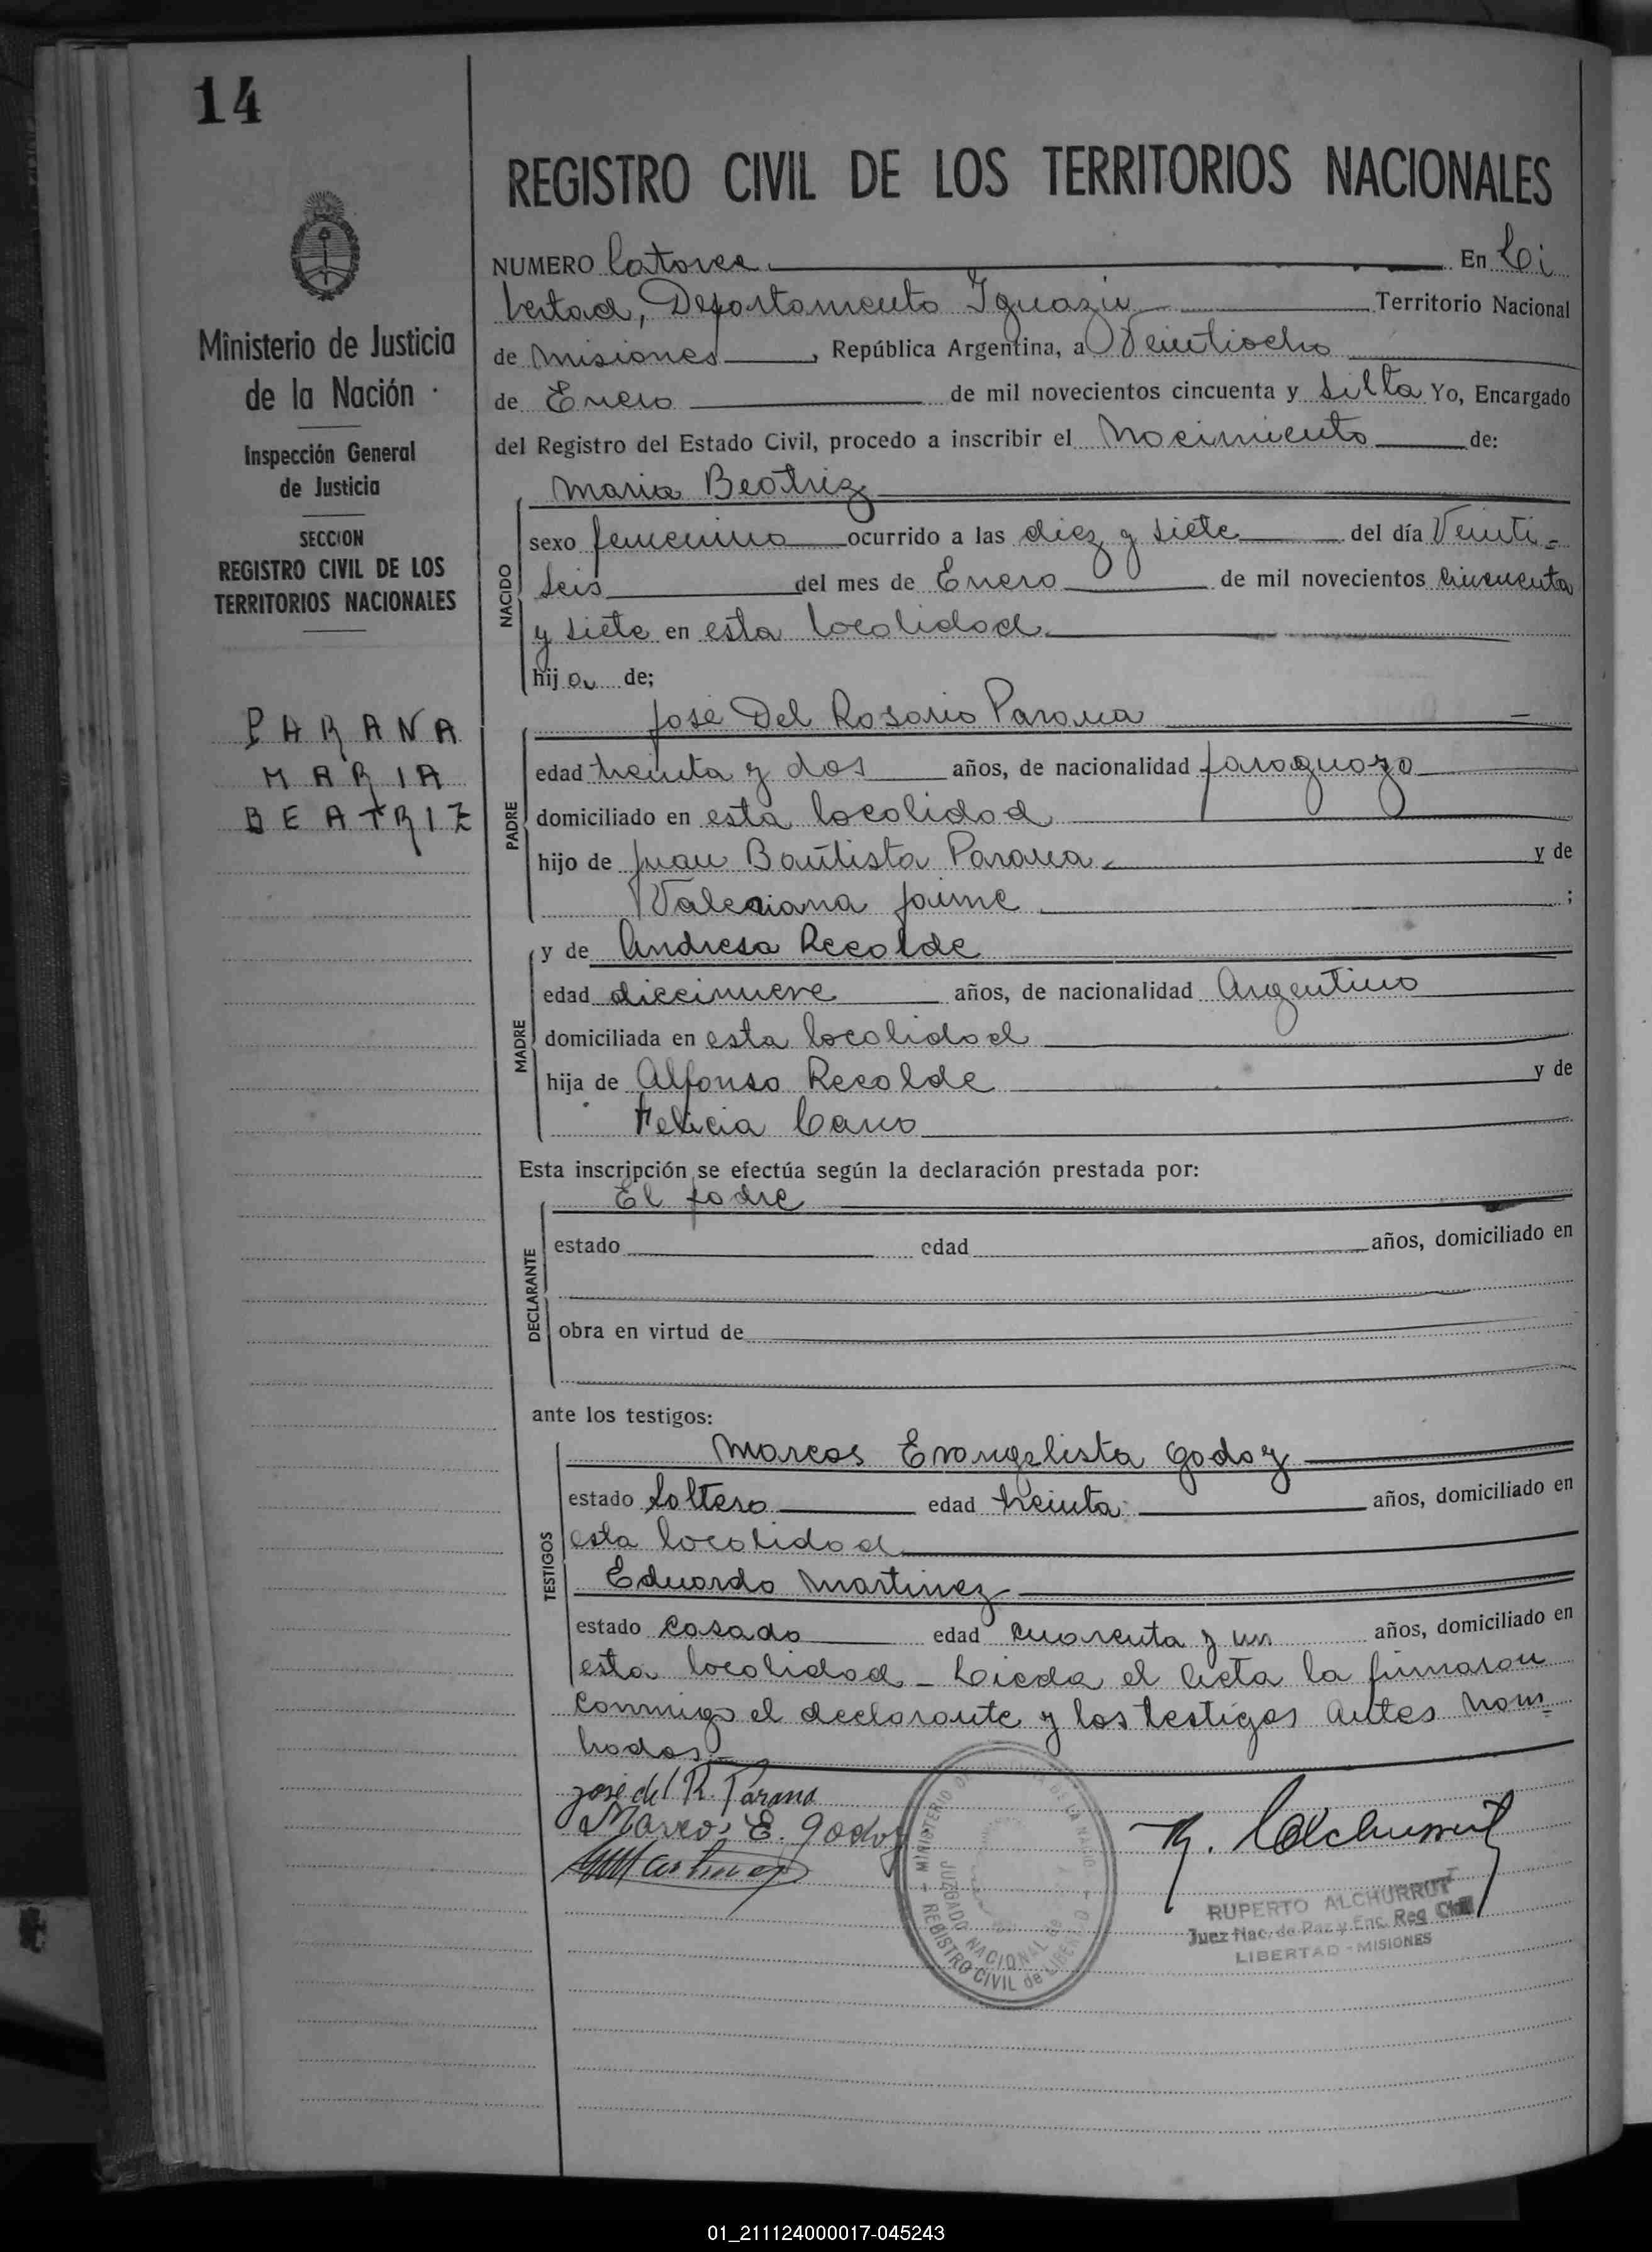 14
Ministerio de Justicia
de la Nación
Inspección General
de Justicia
SECCION
REGISTRO CIVIL DE LOS
TERRITORIOS NACIONALES
PARANA
MARIA
BEATRIZ
REGISTRO CIVIL DE LOS TERRITORIOS NACIONALES
NUMERO Catorce. En Li
bertad, Departamento Iguazú Territorio Nacional
de Misiones, República Argentina, a Veintiocho
de Enero de mil novecientos cincuenta y siete Yo, Encargado
del Registro del Estado Civil, procedo a inscribir el Nacimiento de:
NACIDO
Maria Beatriz
sexo femenino ocurrido a las diez y siete del día Veinti-
seis del mes de Enero de mil novecientos cincuenta
y siete en esta localidad.
hija de;
PADRE
José Del Rosario Parana
edad treinta y dos años, de nacionalidad paraguayo
domiciliado en esta localidad
hijo de Juan Bautista Parana y de
Valeriana Jaime ;
MADRE
y de Andresa Recalde
edad diecinueve años, de nacionalidad Argentino
domiciliada en esta localidad
hija de Alfonso Recalde y de
Felicia Cano
Esta inscripción se efectúa según la declaración prestada por:
DECLARANTE
El padre
estado edad años, domiciliado en
obra en virtud de
ante los testigos:
TESTIGOS
Marcos Evangelista Godoy
estado soltero edad treinta años, domiciliado en
esta localidad
Eduardo Martinez
estado casado edad cuarenta y un años, domiciliado en
esta localidad - Leida el acta la firmaron
conmigo el declarante y los testigos antes nom-
brados.-
José del R. Parana
Marcos E. Godoy
Martinez
R. Alchurrut
MINISTERIO DE JUSTICIA DE LA NACION
JUZGADO NACIONAL de PAZ Y
REGISTRO CIVIL de LIBERTAD
RUPERTO ALCHURRUT
Juez Nac. de Paz y Enc. Reg Civil
LIBERTAD - MISIONES
01_211124000017-045243